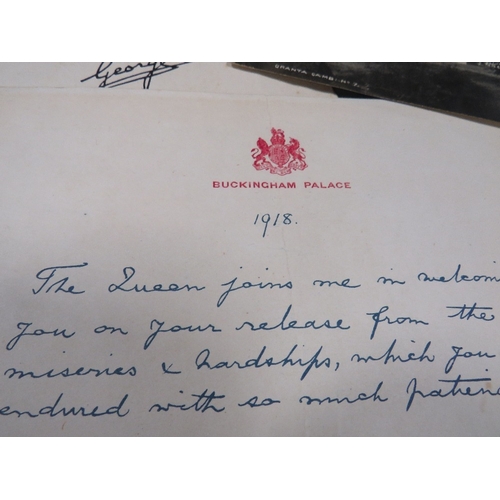 George
BUCKINGHAM PALACE
1918.
The Queen joins me in welcomin
you on your release from the
miseries & hardships, which you
endured with so much patienc